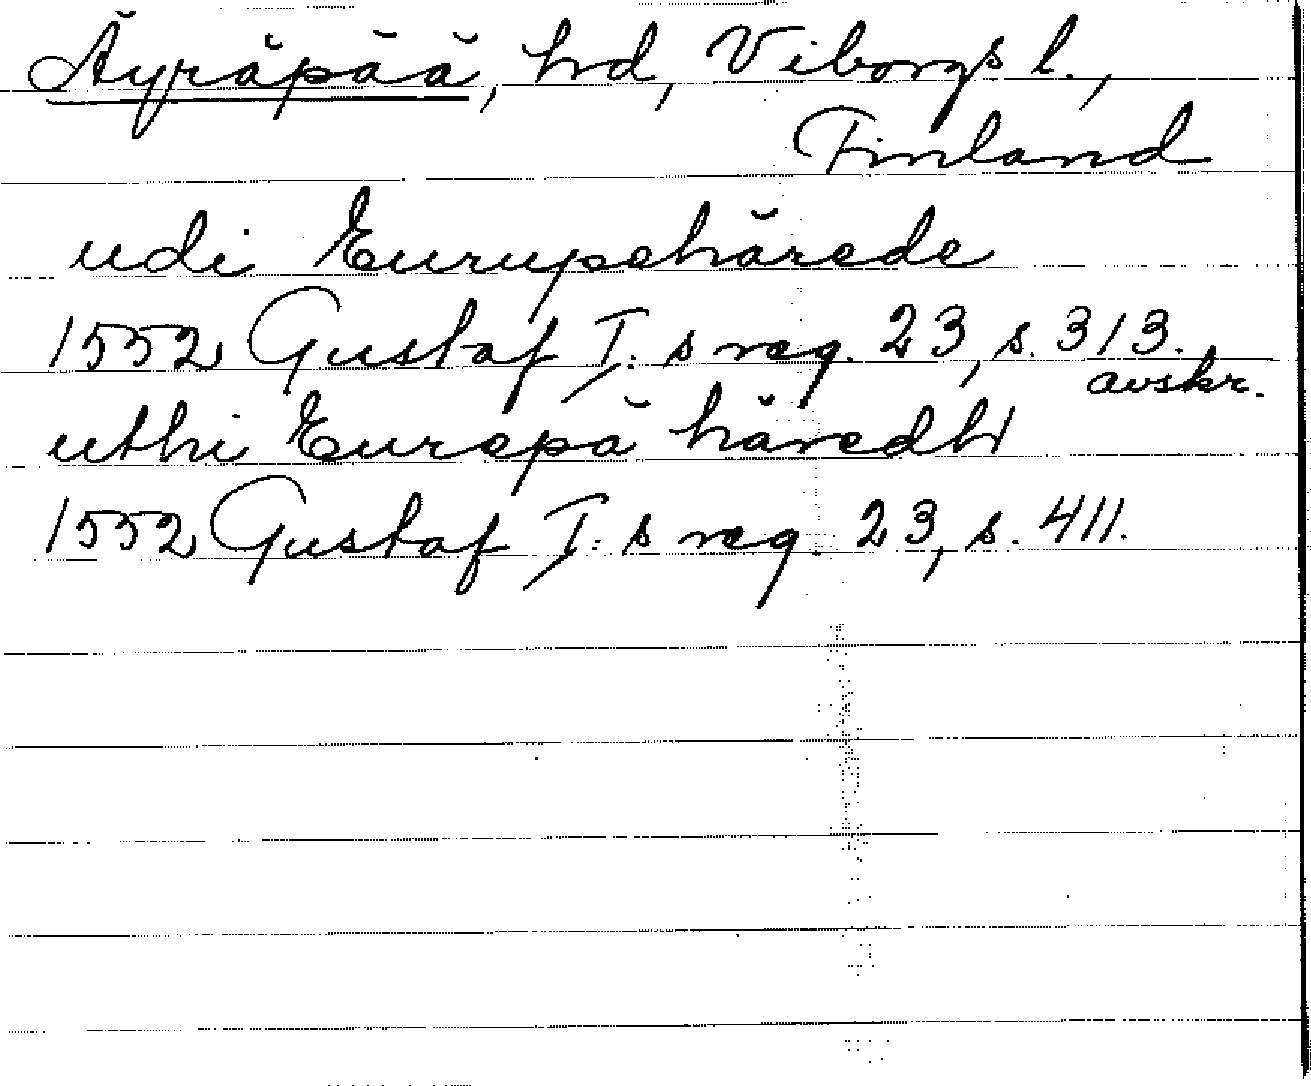 Äyräpää, hrd, Viborgs l.,
Finland
udi Eurupehärede
1552 Gustaf I:s reg. 23, s. 313.
avskr.
uthi Eurepä häredht
1552 Gustaf I:s reg. 23, s. 411.